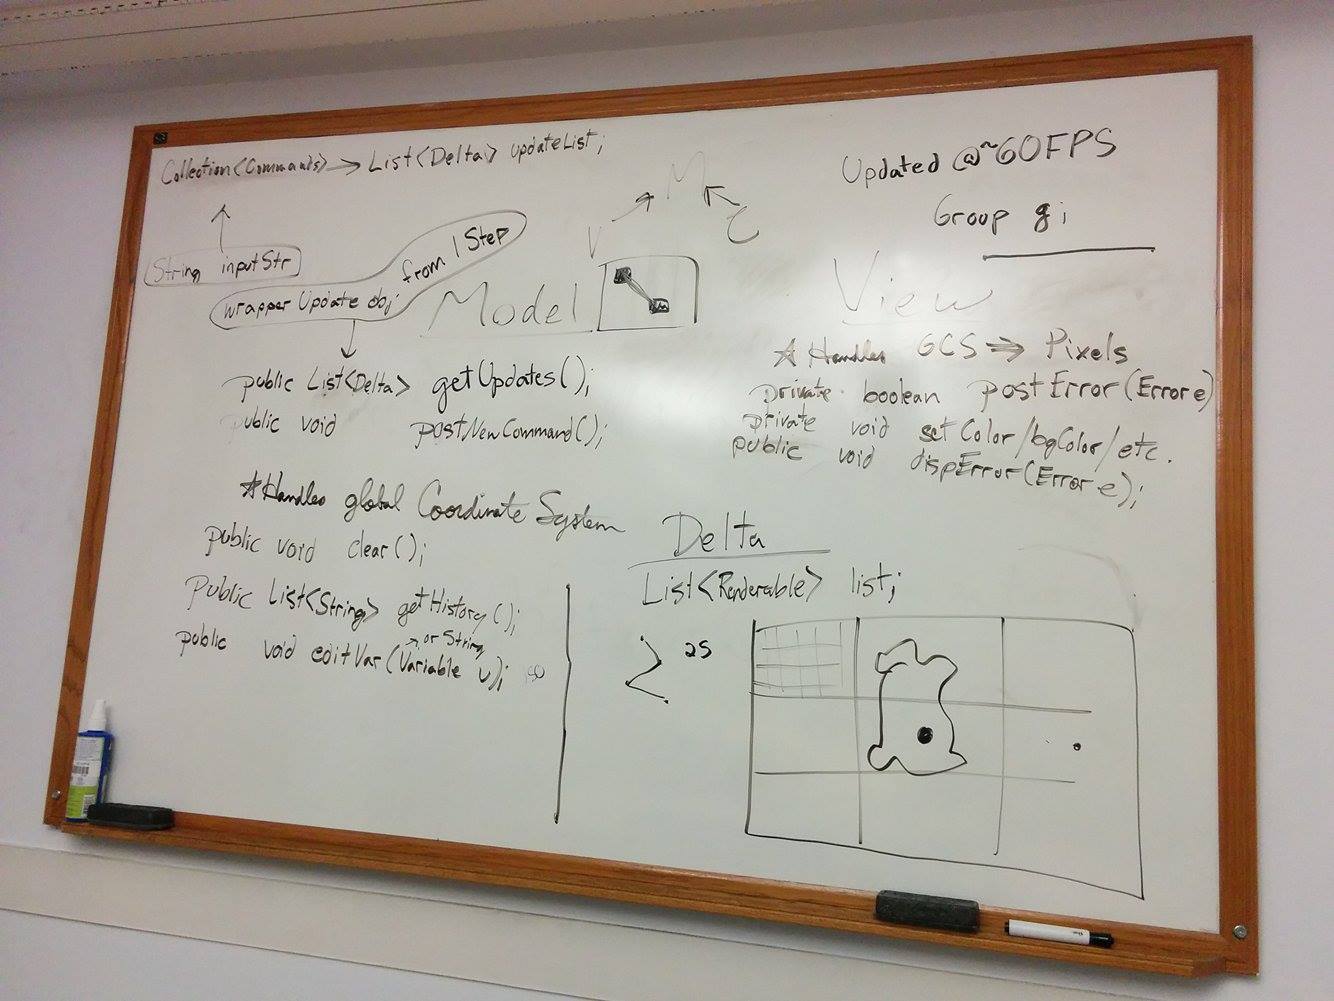 Collection<Commands> → List<Delta> updateList;
String inputStr
wrapper Update obj from 1 Step
M
V C
Model
public List<Delta> getUpdates();
public void postNewCommand();
*Handles global Coordinate System
public void clear();
Public List<String> getHistory();
or String
public void editVar(Variable v);
Updated @~60FPS
Group g;
View
* Handles GCS ⇒ Pixels
private boolean postError(Error e)
private void setColor/bgColor/etc.
public void dispError(Error e);
Delta
List<Renderable> list;
25